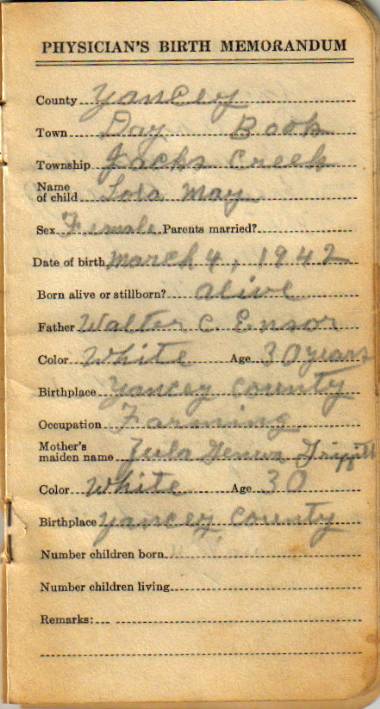 PHYSICIAN'S BIRTH MEMORANDUM
County Yancey
Town Day Book
Township Jacks Creek
Name of child Lola May
Sex Female Parents married?
Date of birth March 4, 1942
Born alive or stillborn? alive
Father Walter C. Ensor
Color White Age 30 years
Birthplace Yancey County
Occupation Farming
Mother's maiden name Zula Geneva
Color White Age 30
Birthplace Yancey County
Number children born
Number children living
Remarks: